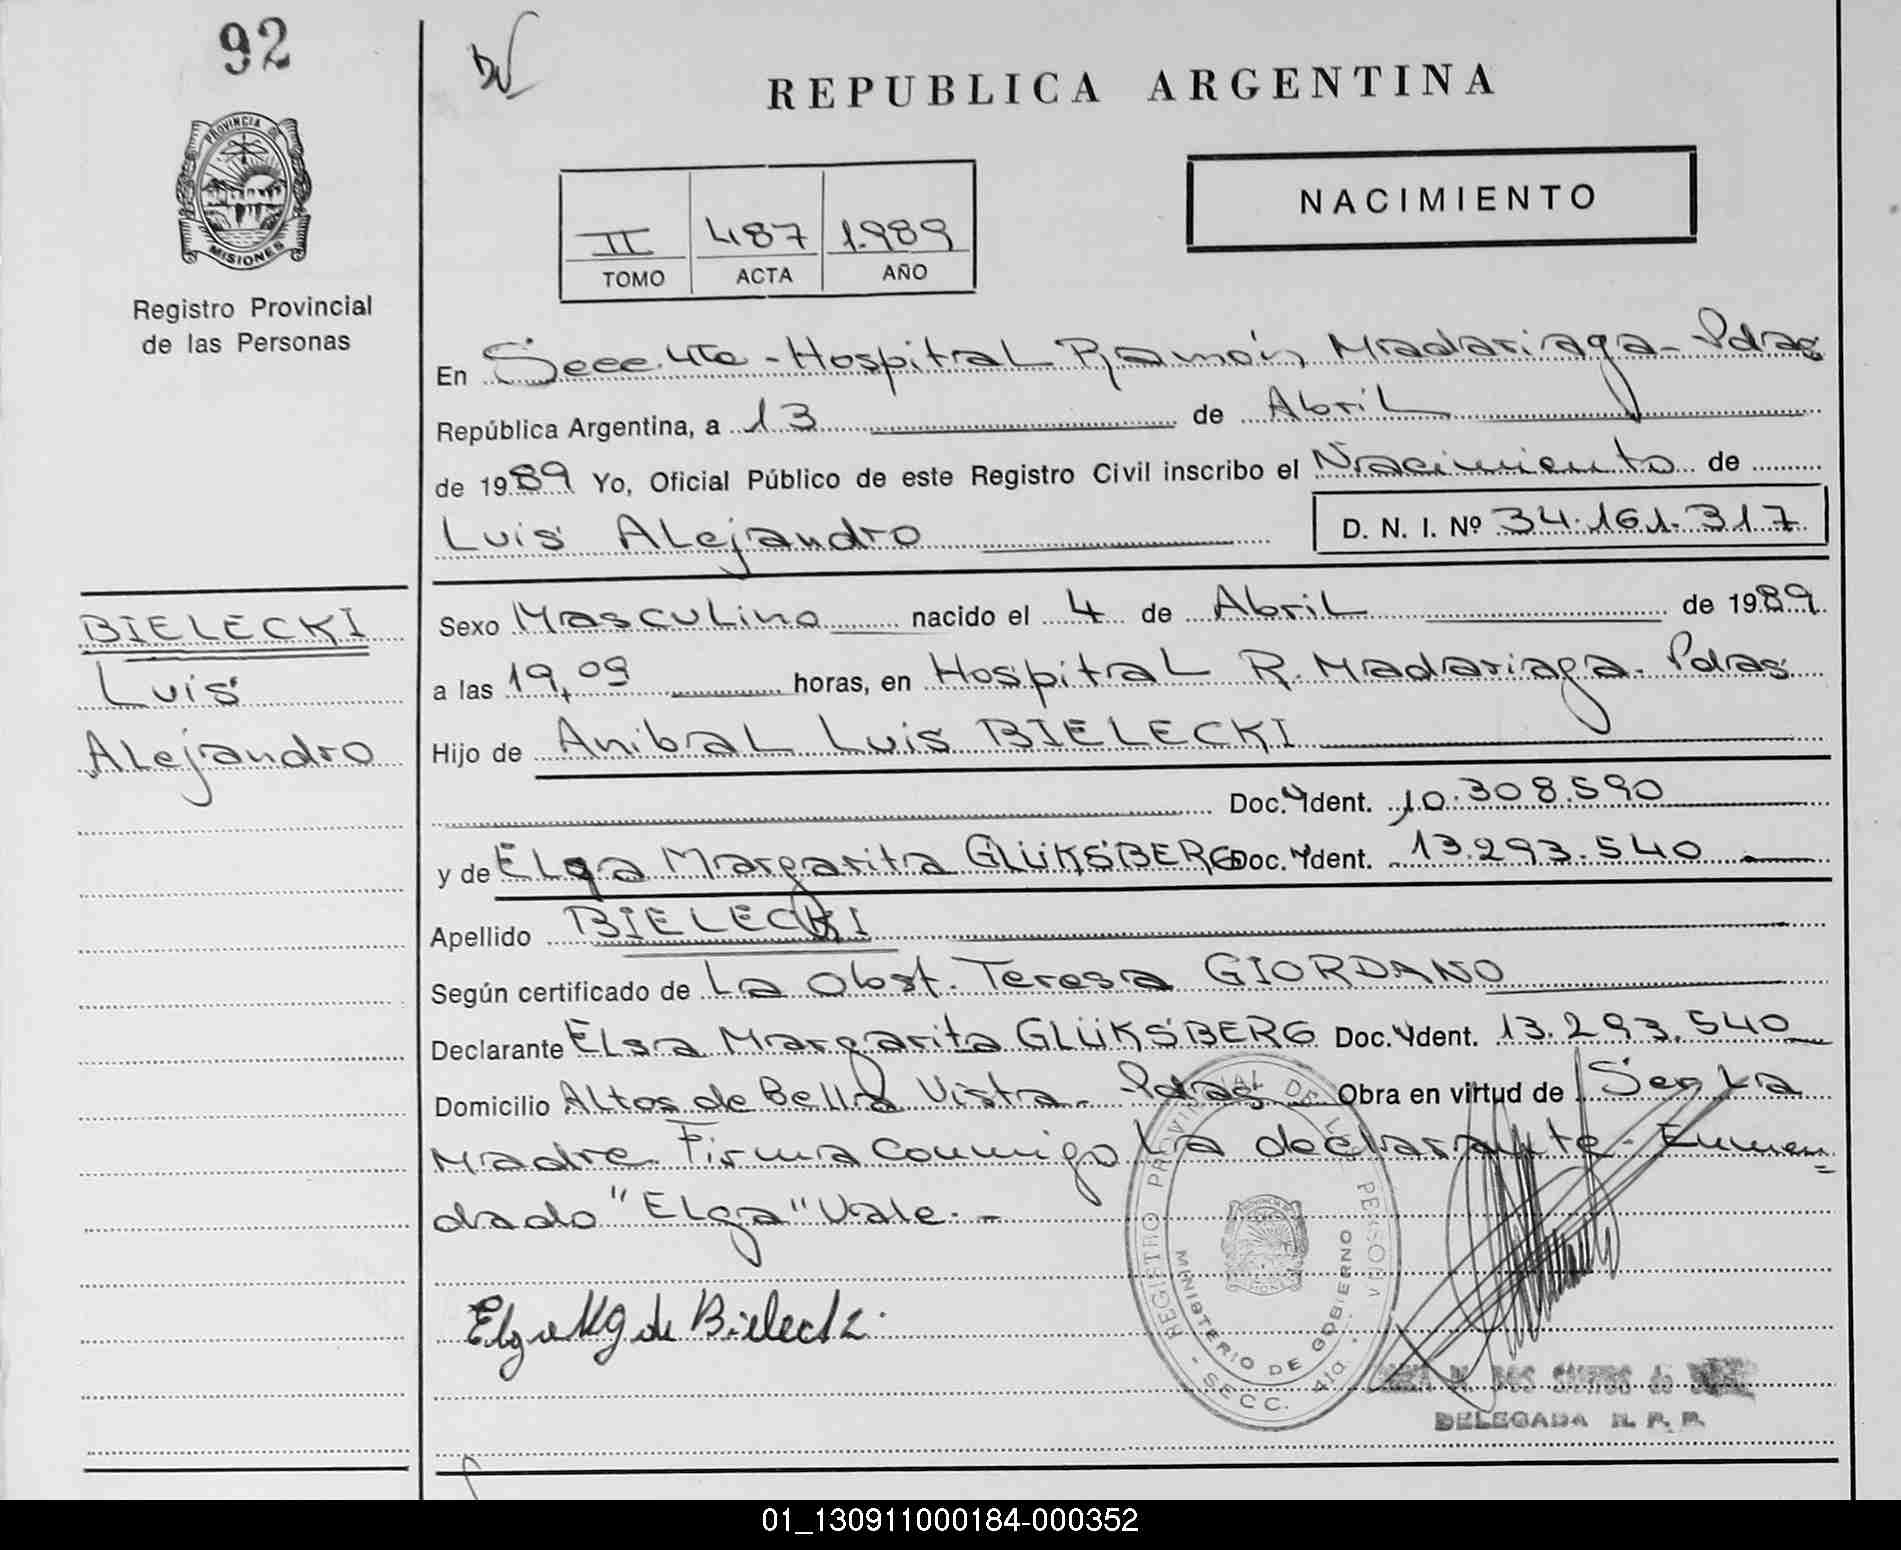 92
REPUBLICA ARGENTINA
PROVINCIA DE
MISIONES
Registro Provincial
de las Personas
II 487 1.989
TOMO ACTA AÑO
NACIMIENTO
En Secc. 4ta - Hospital Ramón Madariaga - Pdas
República Argentina, a 13 de Abril
de 1989 Yo, Oficial Público de este Registro Civil inscribo el Nacimiento de
Luis Alejandro D. N. I. Nº 34.161.317
BIELECKI
Luis
Alejandro
Sexo Masculino nacido el 4 de Abril de 1989
a las 19,09 horas, en Hospital R. Madariaga. Pdas
Hijo de Anibal Luis BIELECKI
Doc. Ydent. 10.308.590
y de Elga Margarita GLÜKSBERG Doc. Ydent. 13.293.540
Apellido BIELECKI
Según certificado de La Obst. Teresa GIORDANO
Declarante Elsa Margarita GLÜKSBERG Doc. Ydent. 13.293.540
Domicilio Altos de Bella Vista - Pdas Obra en virtud de Ser La
Madre Firma Conmigo La declarante - Enmen
dado "Elga" Vale. -
REGISTRO PROVINCIAL DE LAS PERSONAS
MINISTERIO DE GOBIERNO
- SECC. 4ta. -
Elga Mg de Bielecki.
DOS SANTOS de
DELEGADA R. P. P.
01_130911000184-000352